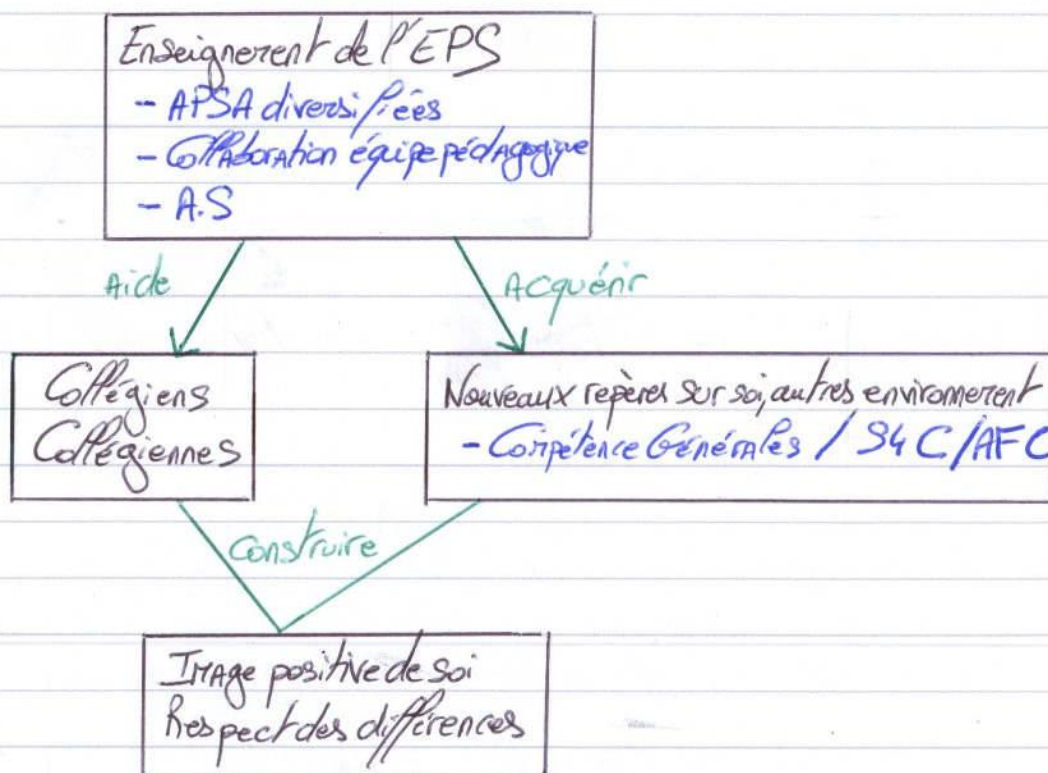 Enseignement de l'EPS
- APSA diversifiées
- Collaboration équipe pédagogique
- A.S
Aide
Acquérir
Collégiens
Collégiennes
Nouveaux repères sur soi, autres environnement
- Compétence Générales / S4C/AFC
Construire
Image positive de soi
Respect des différences